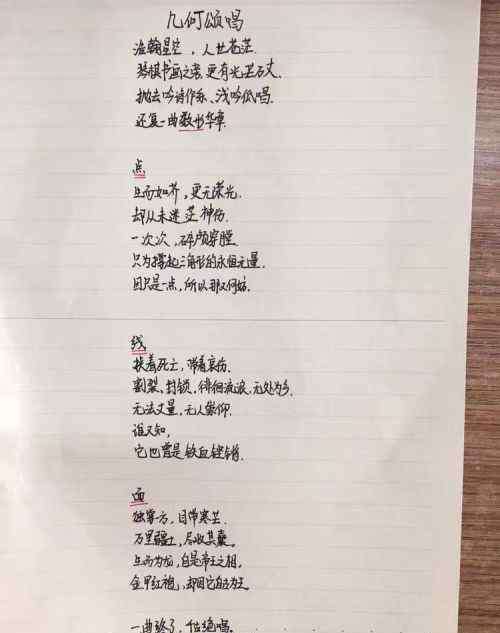 几何颂唱
浩翰星茫，人世苍茫.
琴棋书画之者,更有光芒万丈.
抛去吟诗作、浅吟低唱.
还复一曲数也华章.
点
而如芥,更无荣光.
却从未迷茫神伤.
一次次,碎颅穿膛.
只为撑起三角形的永恒无量.
因只是一点,所以那又何妨.
线
扶着死亡,带着哀伤.
割裂、封锁,徘徊流浪,无处为乡.
无法丈量,无人崇仰.
谁又知,
它也曾是铁血锋.
面
独掌一方,目带寒芒.
万里疆土,尽收其囊.
而为,自是帝王之相.
金甲红袍,却因它自为王.
一曲终了,绝唱.